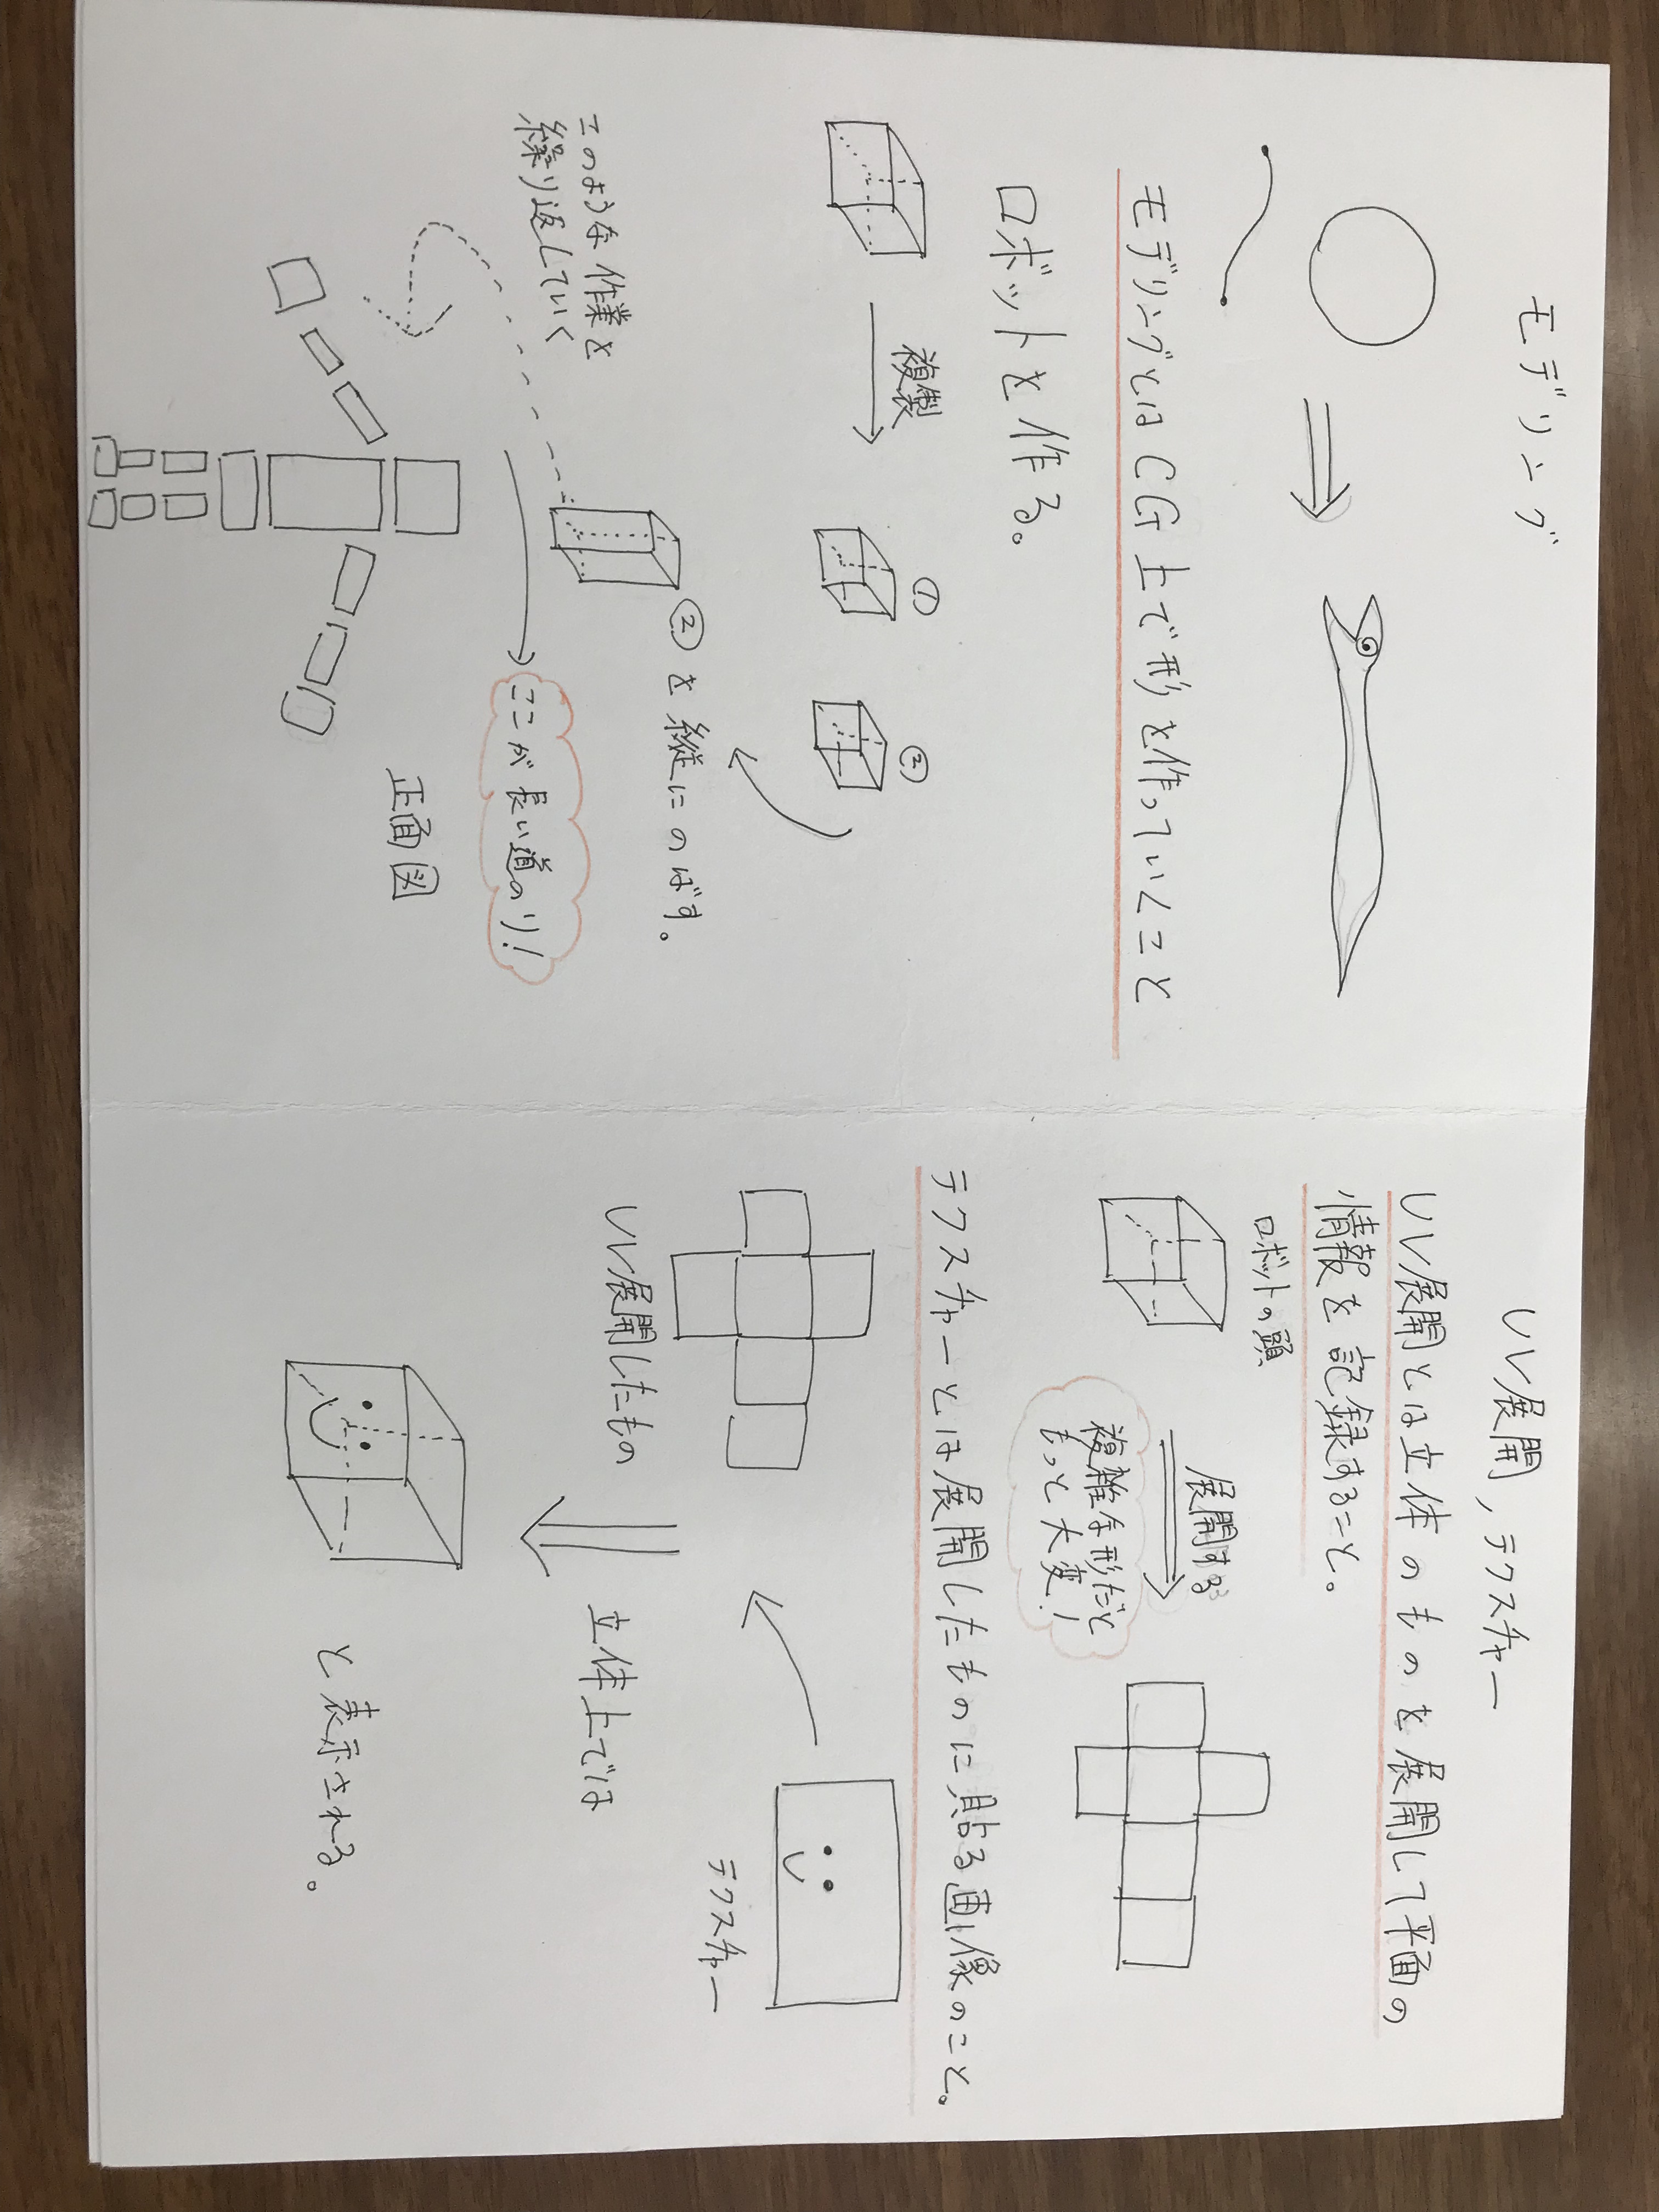 モデリング
モデリングとはCG上で形を作っていくこと
ロボットを作る。
複製
①
②
②を縦にのばす。
このような作業を
繰り返していく
ここが長い道のり!
正面図
UV展開,テクスチャー
UV展開とは立体のものを展開して平面の
情報を記録すること。
ロボットの頭
展開する
複雑な形だと
もっと大変!
テクスチャーとは展開したものに貼る画像のこと。
UV展開したもの
テクスチャー
立体上では
と表示される。